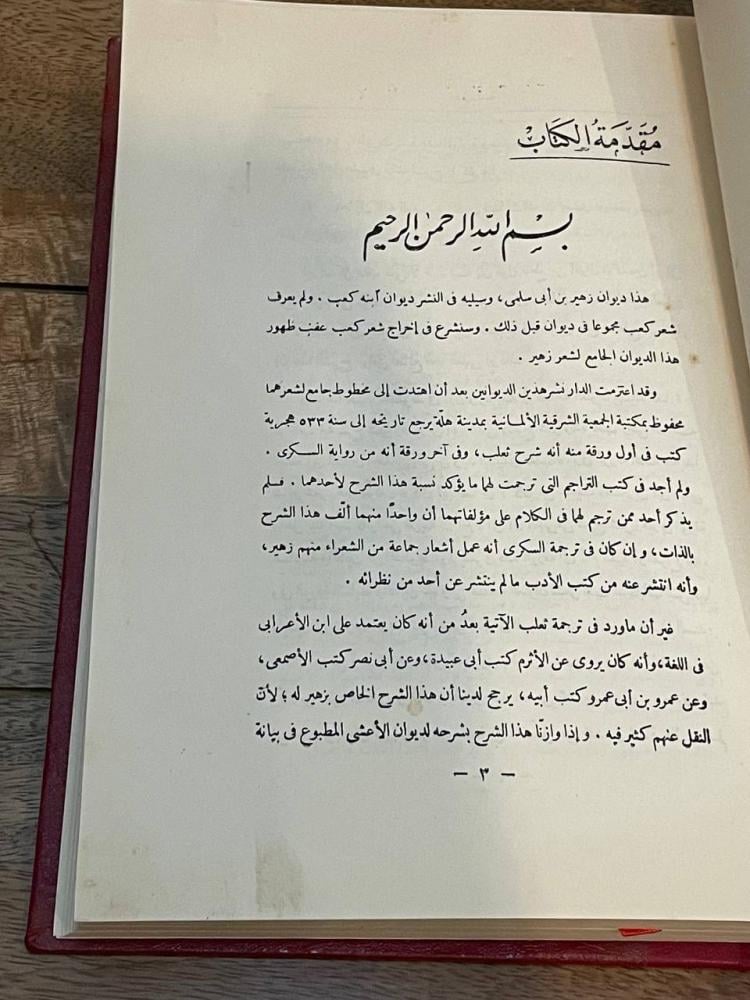 مُقَدّمَةُ الكِتَابْ
بِسْمِ اللهِ الرحمنِ الرحيم
هذا ديوان زهير بن أبى سلمى، وسيليه فى النشر ديوان آبنه كعب . ولم يعرف
شعر كعب مجموعا فى ديوان قبل ذلك . وسنشرع فى إخراج شعر كعب عقب ظهور
هذا الديوان الجامع لشعر زهير .
وقد اعتزمت الدار نشر هذين الديوانين بعد أن اهتدت إلى مخطوط جامع لشعرهما
محفوظ بمكتبة الجمعية الشرقية الألمانية بمدينة هلّة يرجع تاريخه إلى سنة ٥٣٣ هجرية
كتب فى أول ورقة منه أنه شرح ثعلب، وفى آخر ورقة أنه من رواية السكرى .
ولم أجد فى كتب التراجم التى ترجمت لهما ما يؤكد نسبة هذا الشرح لأحدهما . فلم
يذكر أحد ممن ترجم لهما فى الكلام على مؤلفاتهما أن واحدًا منهما ألّف هذا الشرح
بالذات، وإن كان فى ترجمة السكرى أنه عمل أشعار جماعة من الشعراء منهم زهير،
وأنه انتشر عنه من كتب الأدب ما لم ينتشر عن أحد من نظرائه .
غير أن ماورد فى ترجمة ثعلب الآتية بعدُ من أنه كان يعتمد على ابن الأعرابى
فى اللغة، وأنه كان يروى عن الأثرم كتب أبى عبيدة، وعن أبى نصر كتب الأصمعى،
وعن عمرو بن أبى عمرو كتب أبيه، يرجح لدينا أن هذا الشرح الخاص بزهير له ؛ لأن
النقل عنهم كثير فيه . وإذا وازنّا هذا الشرح بشرحه لديوان الأعشى المطبوع فى بيانة
— ٣ —